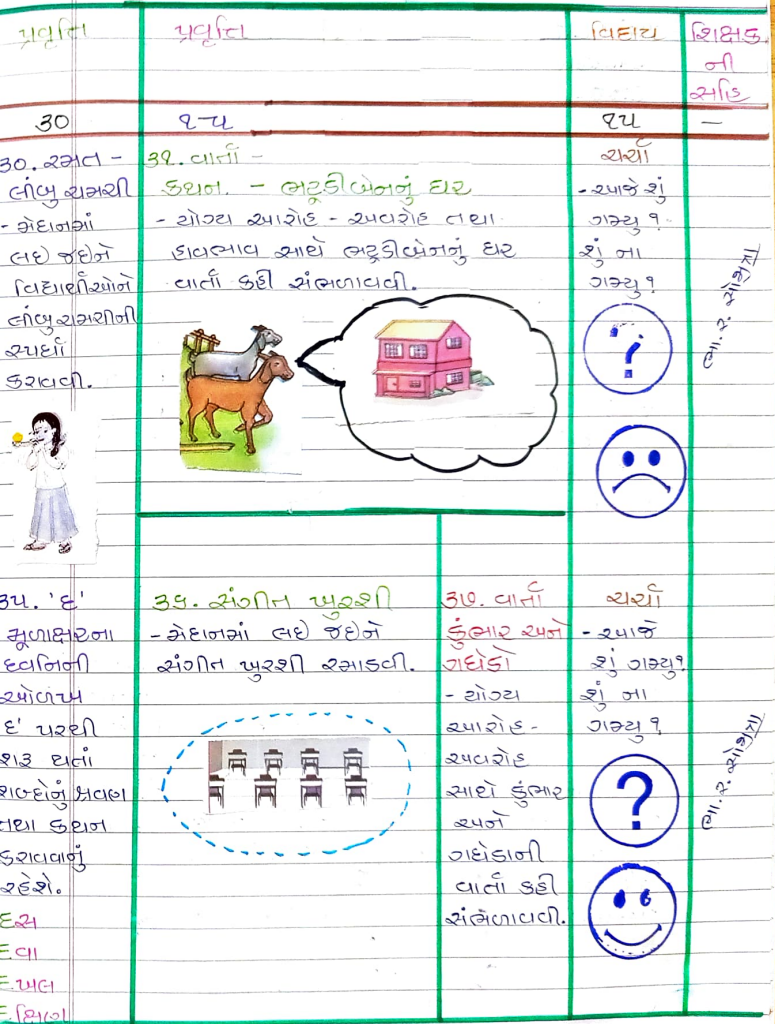 પ્રવૃત્તિ
પ્રવૃત્તિ
વિદાય
શિક્ષક
ની
સહિ
૩૦
૧-૫
૧૫
—
૩૦. રમત -
લીંબુ ચમચી
- મેદાનમાં
લઇ જઇને
વિદ્યાર્થીઓને
લીંબુ ચમચીની
સ્પર્ધા
કરાવવી.
૩૧. વાર્તા -
કથન. - ભટૂડીબેનનું ઘર
- યોગ્ય આરોહ - અવરોહ તથા
હાવભાવ સાથે ભટૂડીબેનનું ઘર
વાર્તા કહી સંભળાવવી.
ચર્ચા
- આજે શું
ગમ્યુ ?
શું ના
ગમ્યુ ?
?
૩૫. 'દ'
મૂળાક્ષરના
ધ્વનિની
ઓળખ
દ' પરથી
શરૂ થતાં
શબ્દોનું શ્રવણ
તથા કથન
કરાવવાનું
રહેશે.
દસ
દવા
દખલ
દક્ષિણ
૩૬. સંગીત ખુરશી
- મેદાનમાં લઇ જઇને
સંગીત ખુરશી રમાડવી.
૩૭. વાર્તા
કુંભાર અને
ગધેડો
- યોગ્ય
આરોહ -
અવરોહ
સાથે કુંભાર
અને
ગધેડાની
વાર્તા કહી
સંભળાવવી.
ચર્ચા
- આજે
શું ગમ્યુ?
શું ના
ગમ્યુ ?
?